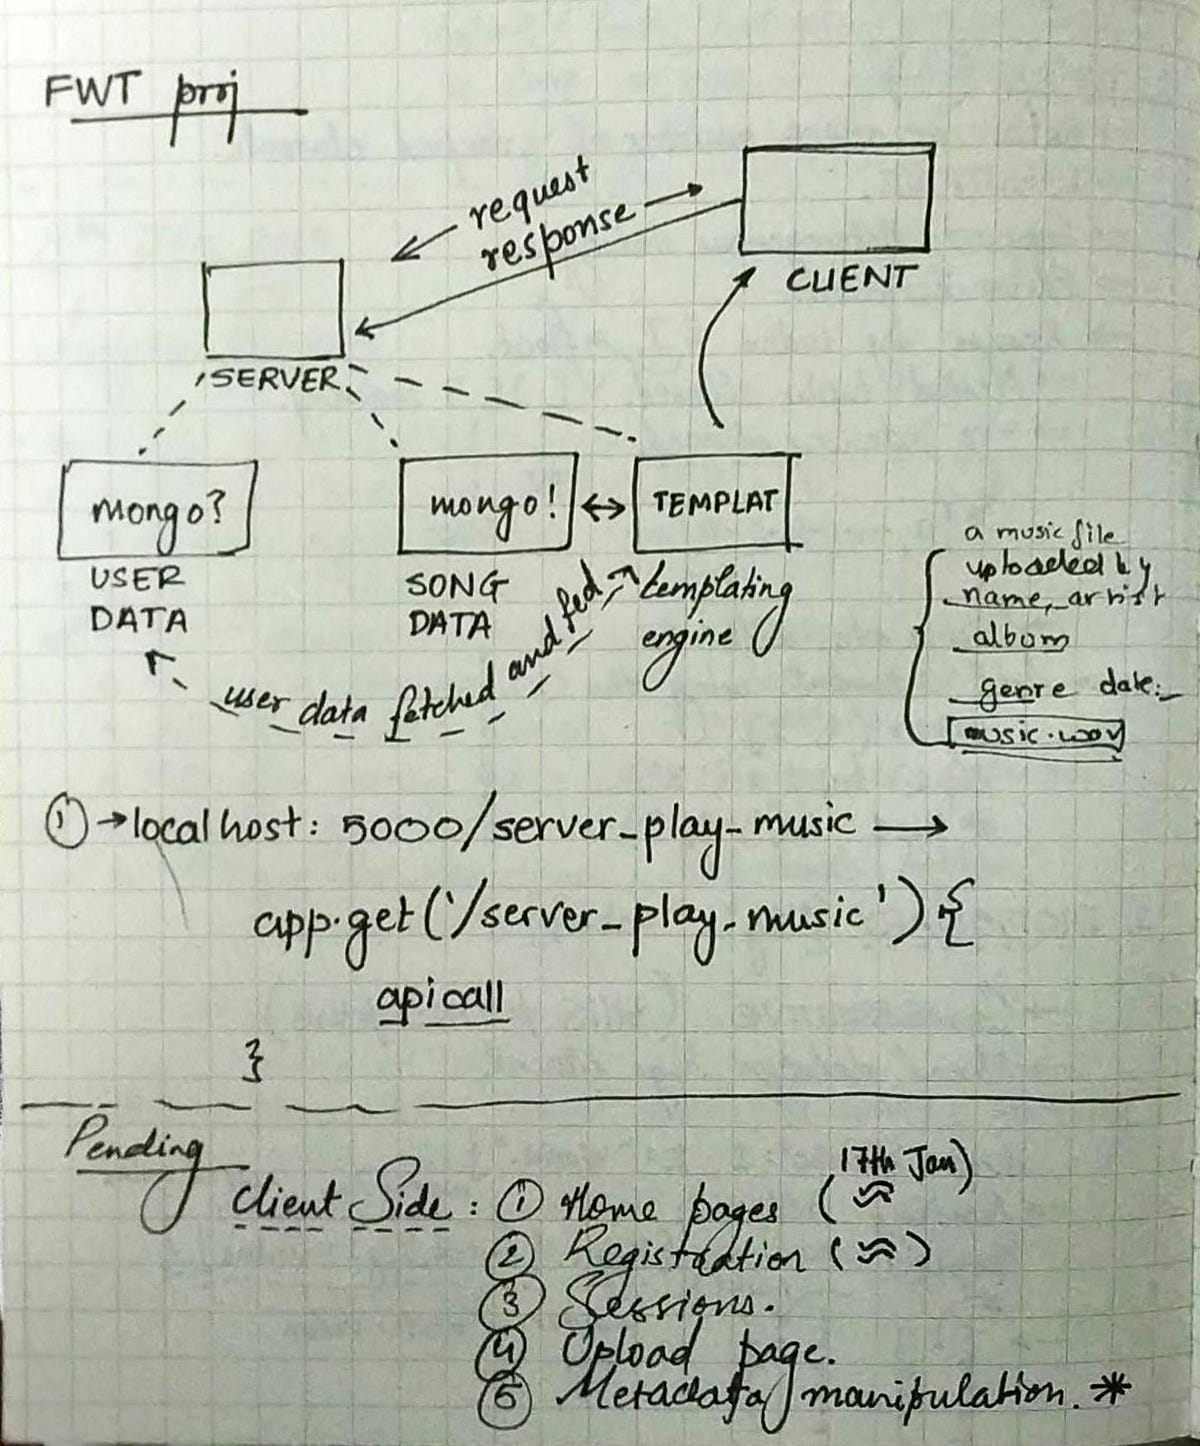 FWT proj
request
response
CLIENT
SERVER
mongo?
USER
DATA
mongo!
SONG
DATA
TEMPLAT
templating
engine
user data fetched and fed
a music file
uploaded by
name, artist
album
genre date:
music.wav
① → localhost: 5000/server_play_music →
app.get('/server_play_music') {
api call
}
Pending
Client Side : ① Home pages (≈ 17th Jan)
② Registration (≈)
③ Sessions.
④ Upload page.
⑤ Metadata manipulation. *